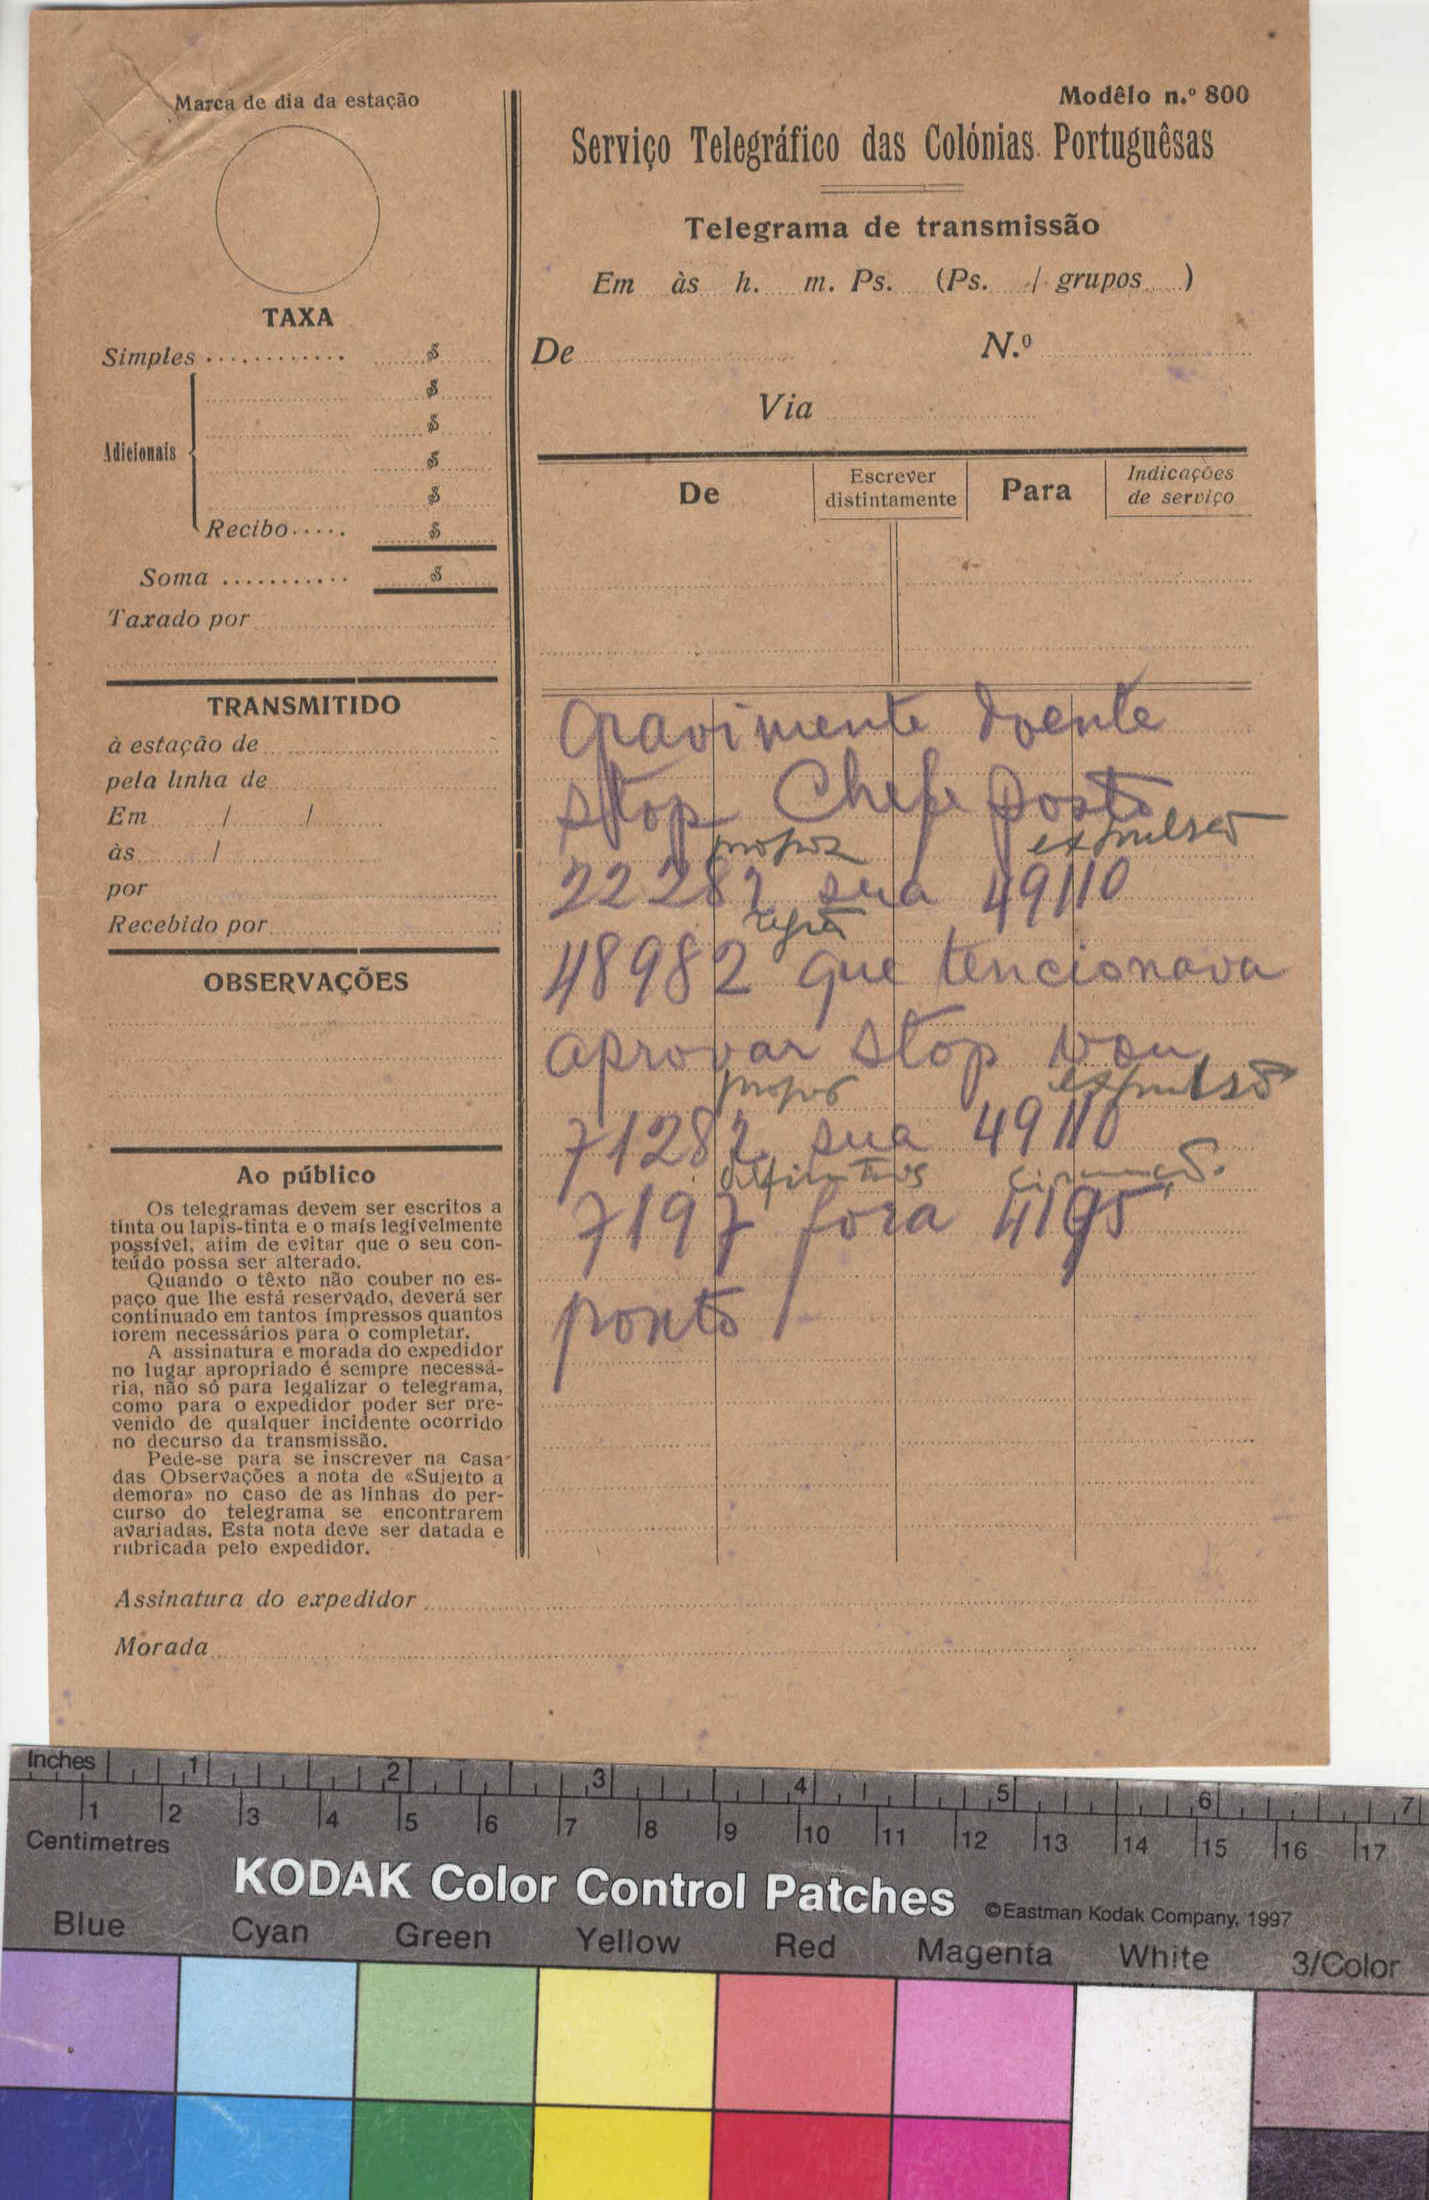 Marca de dia da estação
TAXA
Simples ............ $
$
$
Adicionais
$
$
Recibo..... $
Soma ........... $
Taxado por
TRANSMITIDO
à estação de
pela linha de
Em / /
às /
por
Recebido por
OBSERVAÇÕES
Ao público
Os telegramas devem ser escritos a
tinta ou lapis-tinta e o mais legivelmente
possível, afim de evitar que o seu con-
teúdo possa ser alterado.
Quando o têxto não couber no es-
paço que lhe está reservado, deverá ser
continuado em tantos impressos quantos
forem necessários para o completar.
A assinatura e morada do expedidor
no lugar apropriado é sempre necessá-
ria, não só para legalizar o telegrama,
como para o expedidor poder ser pre-
venido de qualquer incidente ocorrido
no decurso da transmissão.
Pede-se para se inscrever na casa
das Observações a nota de «Sujeito a
demora» no caso de as linhas do per-
curso do telegrama se encontrarem
avariadas. Esta nota deve ser datada e
rubricada pelo expedidor.
Modêlo n.º 800
Serviço Telegráfico das Colónias Portuguêsas
Telegrama de transmissão
Em às h. m. Ps. (Ps. / grupos )
De N.º
Via
De
Escrever
distintamente
Para
Indicações
de serviço
Gravimente doente
stop Chefe posto
propoz expulsão
22282 sua 49110
48982 que tencionava
aprovar stop vou
propor expulsão
71282 sua 49110
definitivos
7197 fora 4195
ponto
Assinatura do expedidor
Morada
Inches 1 2 3 4 5 6 7
1 2 3 4 5 6 7 8 9 10 11 12 13 14 15 16 17
Centimetres
KODAK Color Control Patches ©Eastman Kodak Company, 1997
Blue Cyan Green Yellow Red Magenta White 3/Color